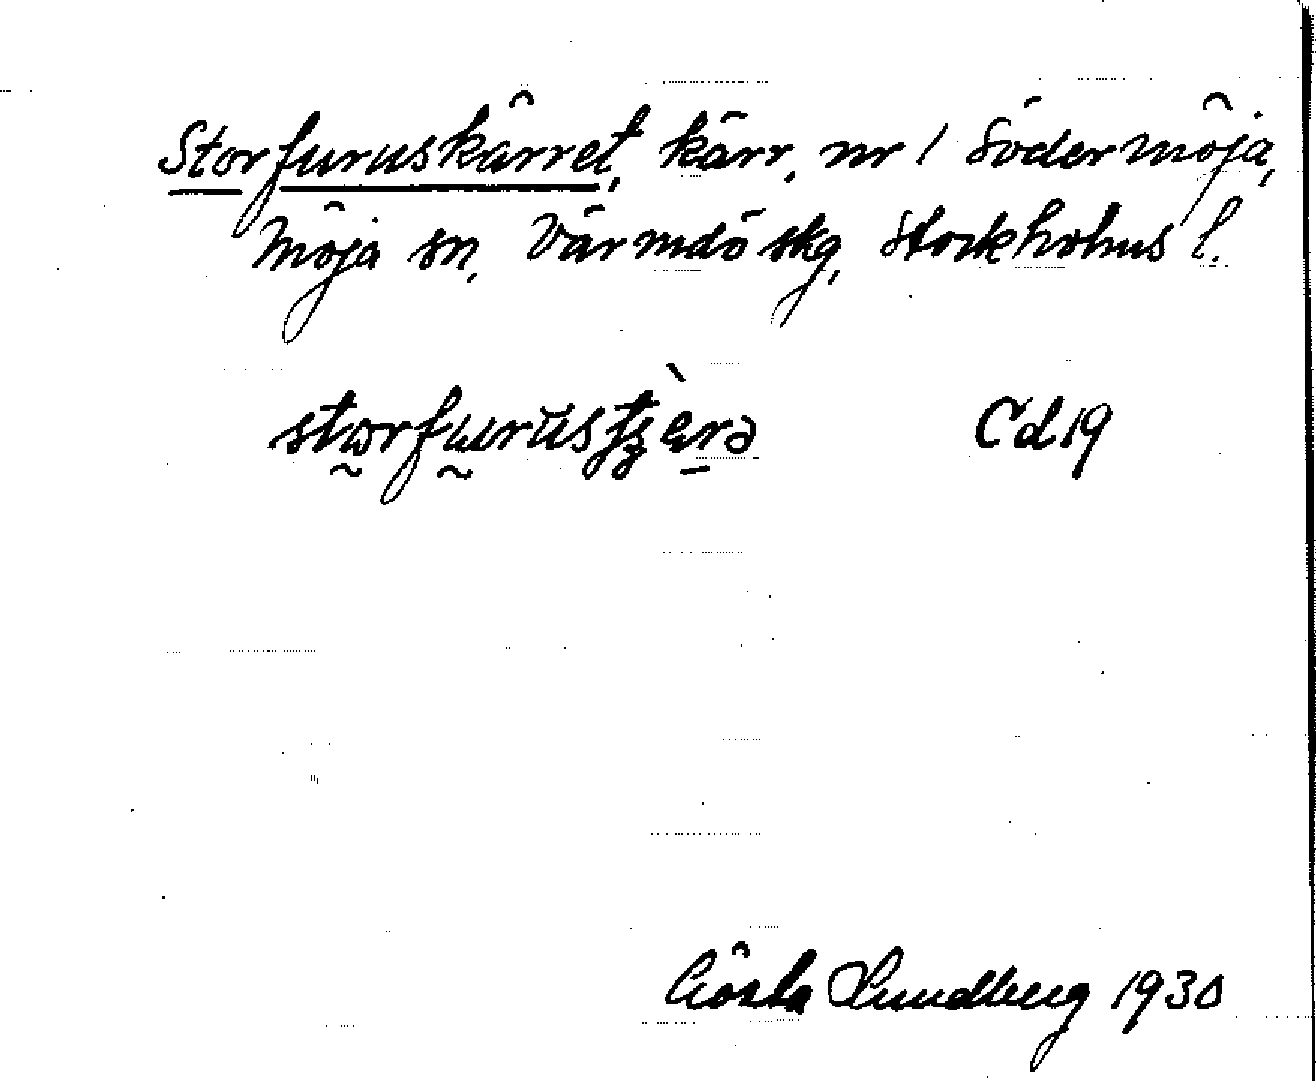 Storfuruskärret, kärr, nr 1 Södermöja,
Möja sn, Värmdö skg, Stockholms l.
Cd 19
Gösta Lundberg 1930